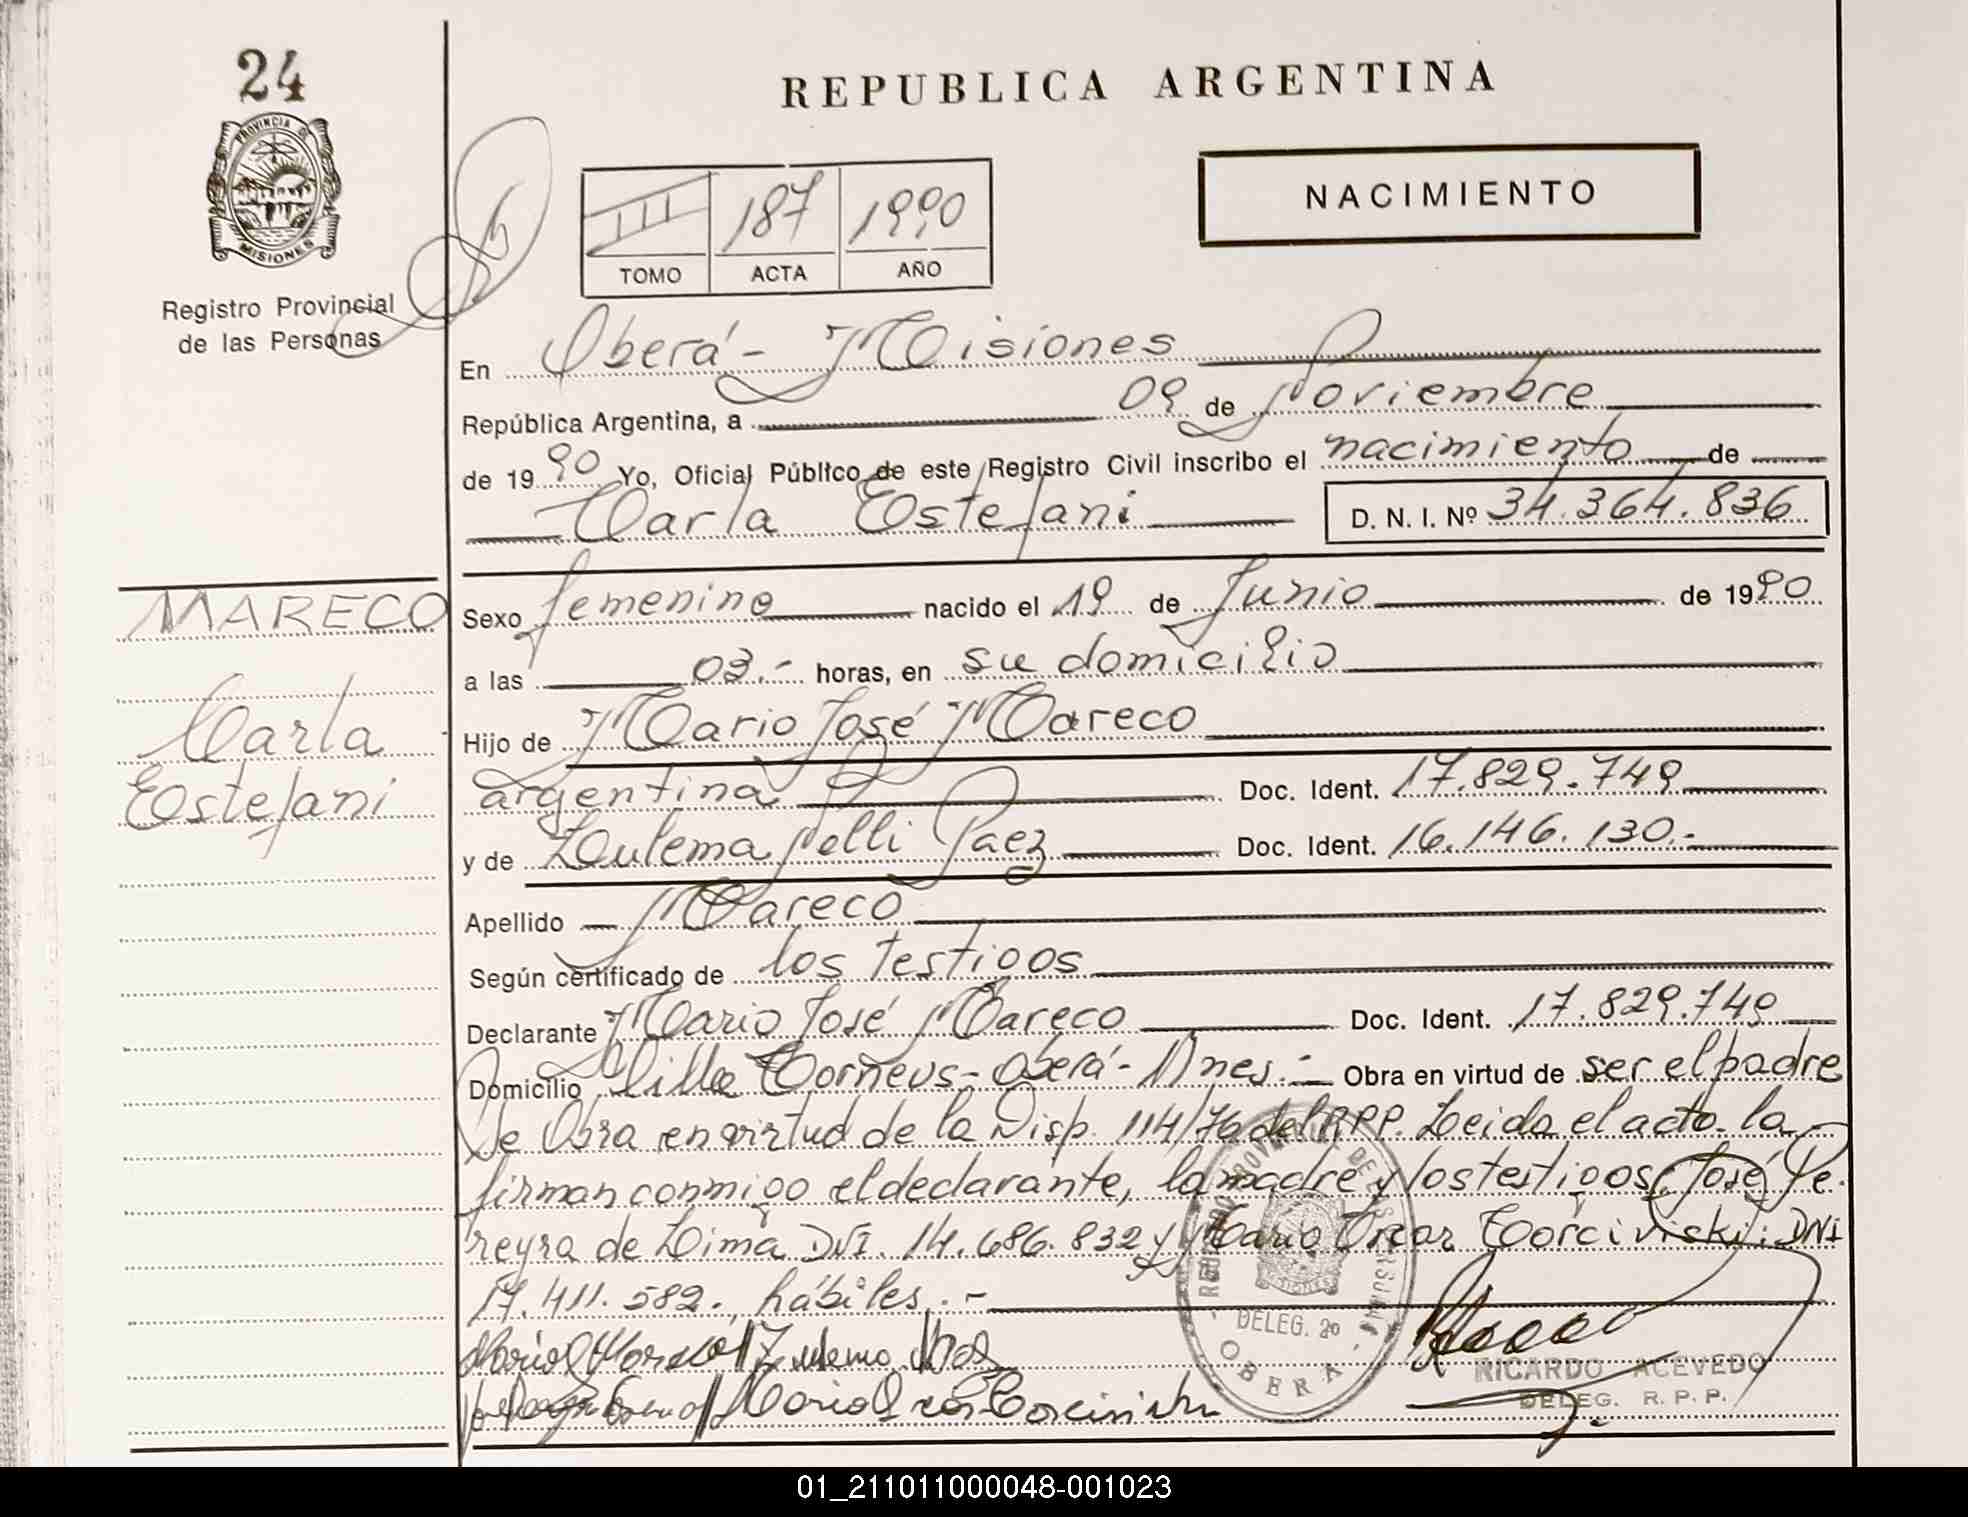 24
REPUBLICA ARGENTINA
PROVINCIA DE
MISIONES
Registro Provincial
de las Personas
III 187 1990
TOMO ACTA AÑO
NACIMIENTO
En Oberá - Misiones
República Argentina, a 09 de Noviembre
de 1990 Yo, Oficial Público de este Registro Civil inscribo el nacimiento de
Carla Estefani D. N. I. Nº 34.364.836
MARECO
Carla
Estefani
Sexo femenino nacido el 19 de Junio de 1990
a las 03.- horas, en su domicilio
Hijo de Mario José Mareco
argentina Doc. Ident. 17.829.749
y de Zulema Nelli Paez Doc. Ident. 16.146.130.-
Apellido Mareco
Según certificado de los testigos
Declarante Mario José Mareco Doc. Ident. 17.829.749
Domicilio Villa - Oberá - Mnes.- Obra en virtud de ser el padre
Se Obra en virtud de la Disp. 114/76 del RPP. Leida el acta la
firman conmigo el declarante, la madre y los testigos: José Pe-
reyra de Lima DNI. 14.686.832 y Mario Oscar DNI
17.411.582. hábiles.-
REGISTRO PROVINCIAL DE LAS PERSONAS
DELEG. 2º
OBERA
RICARDO ACEVEDO
DELEG. R. P. P.
01_211011000048-001023